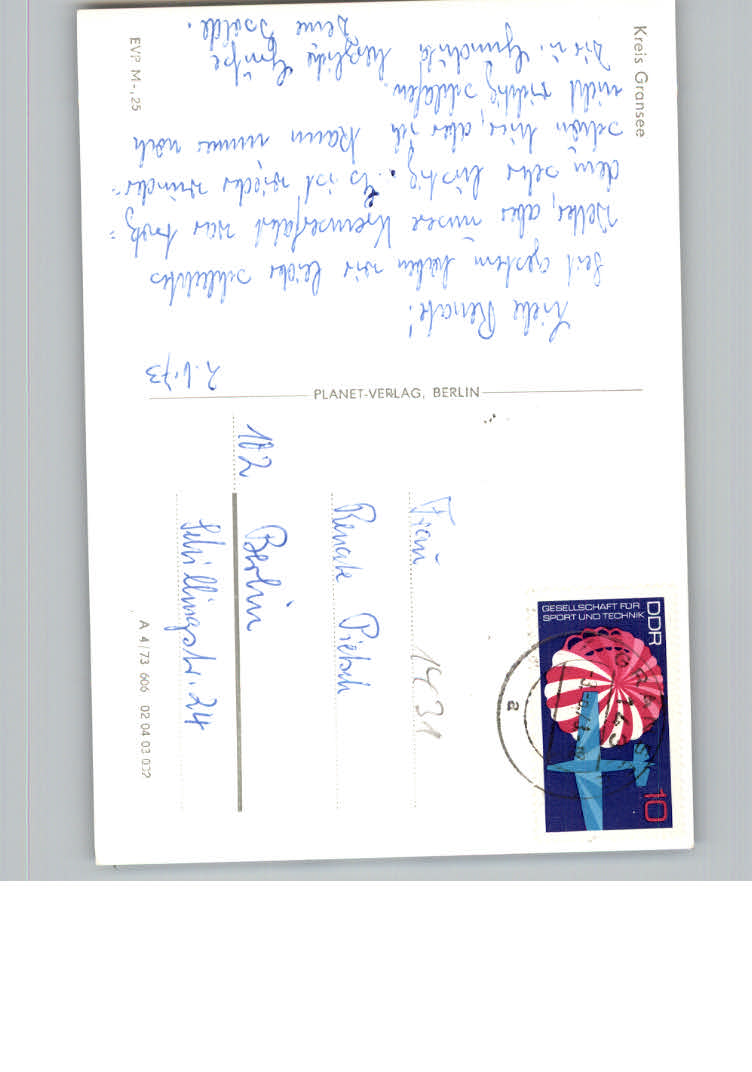 Kreis Gransee
2. 6. 73
Liebe Renate!
Seit gestern haben wir leider schlechtes
Wetter, aber unsere Kremserfahrt war trotz=
dem sehr lustig. Es ist wieder wunder=
schön hier, aber ich kann immer noch
nicht richtig schlafen.
Dir u. herzliche Grüße
Deine Isolde.
EVP M -,25
PLANET-VERLAG, BERLIN
Frau
1431
Renate Pietsch
102 Berlin
Schillingstr. 24
A 4/73 606 02 04 03 032
DDR
GESELLSCHAFT FÜR
SPORT UND TECHNIK
10
a